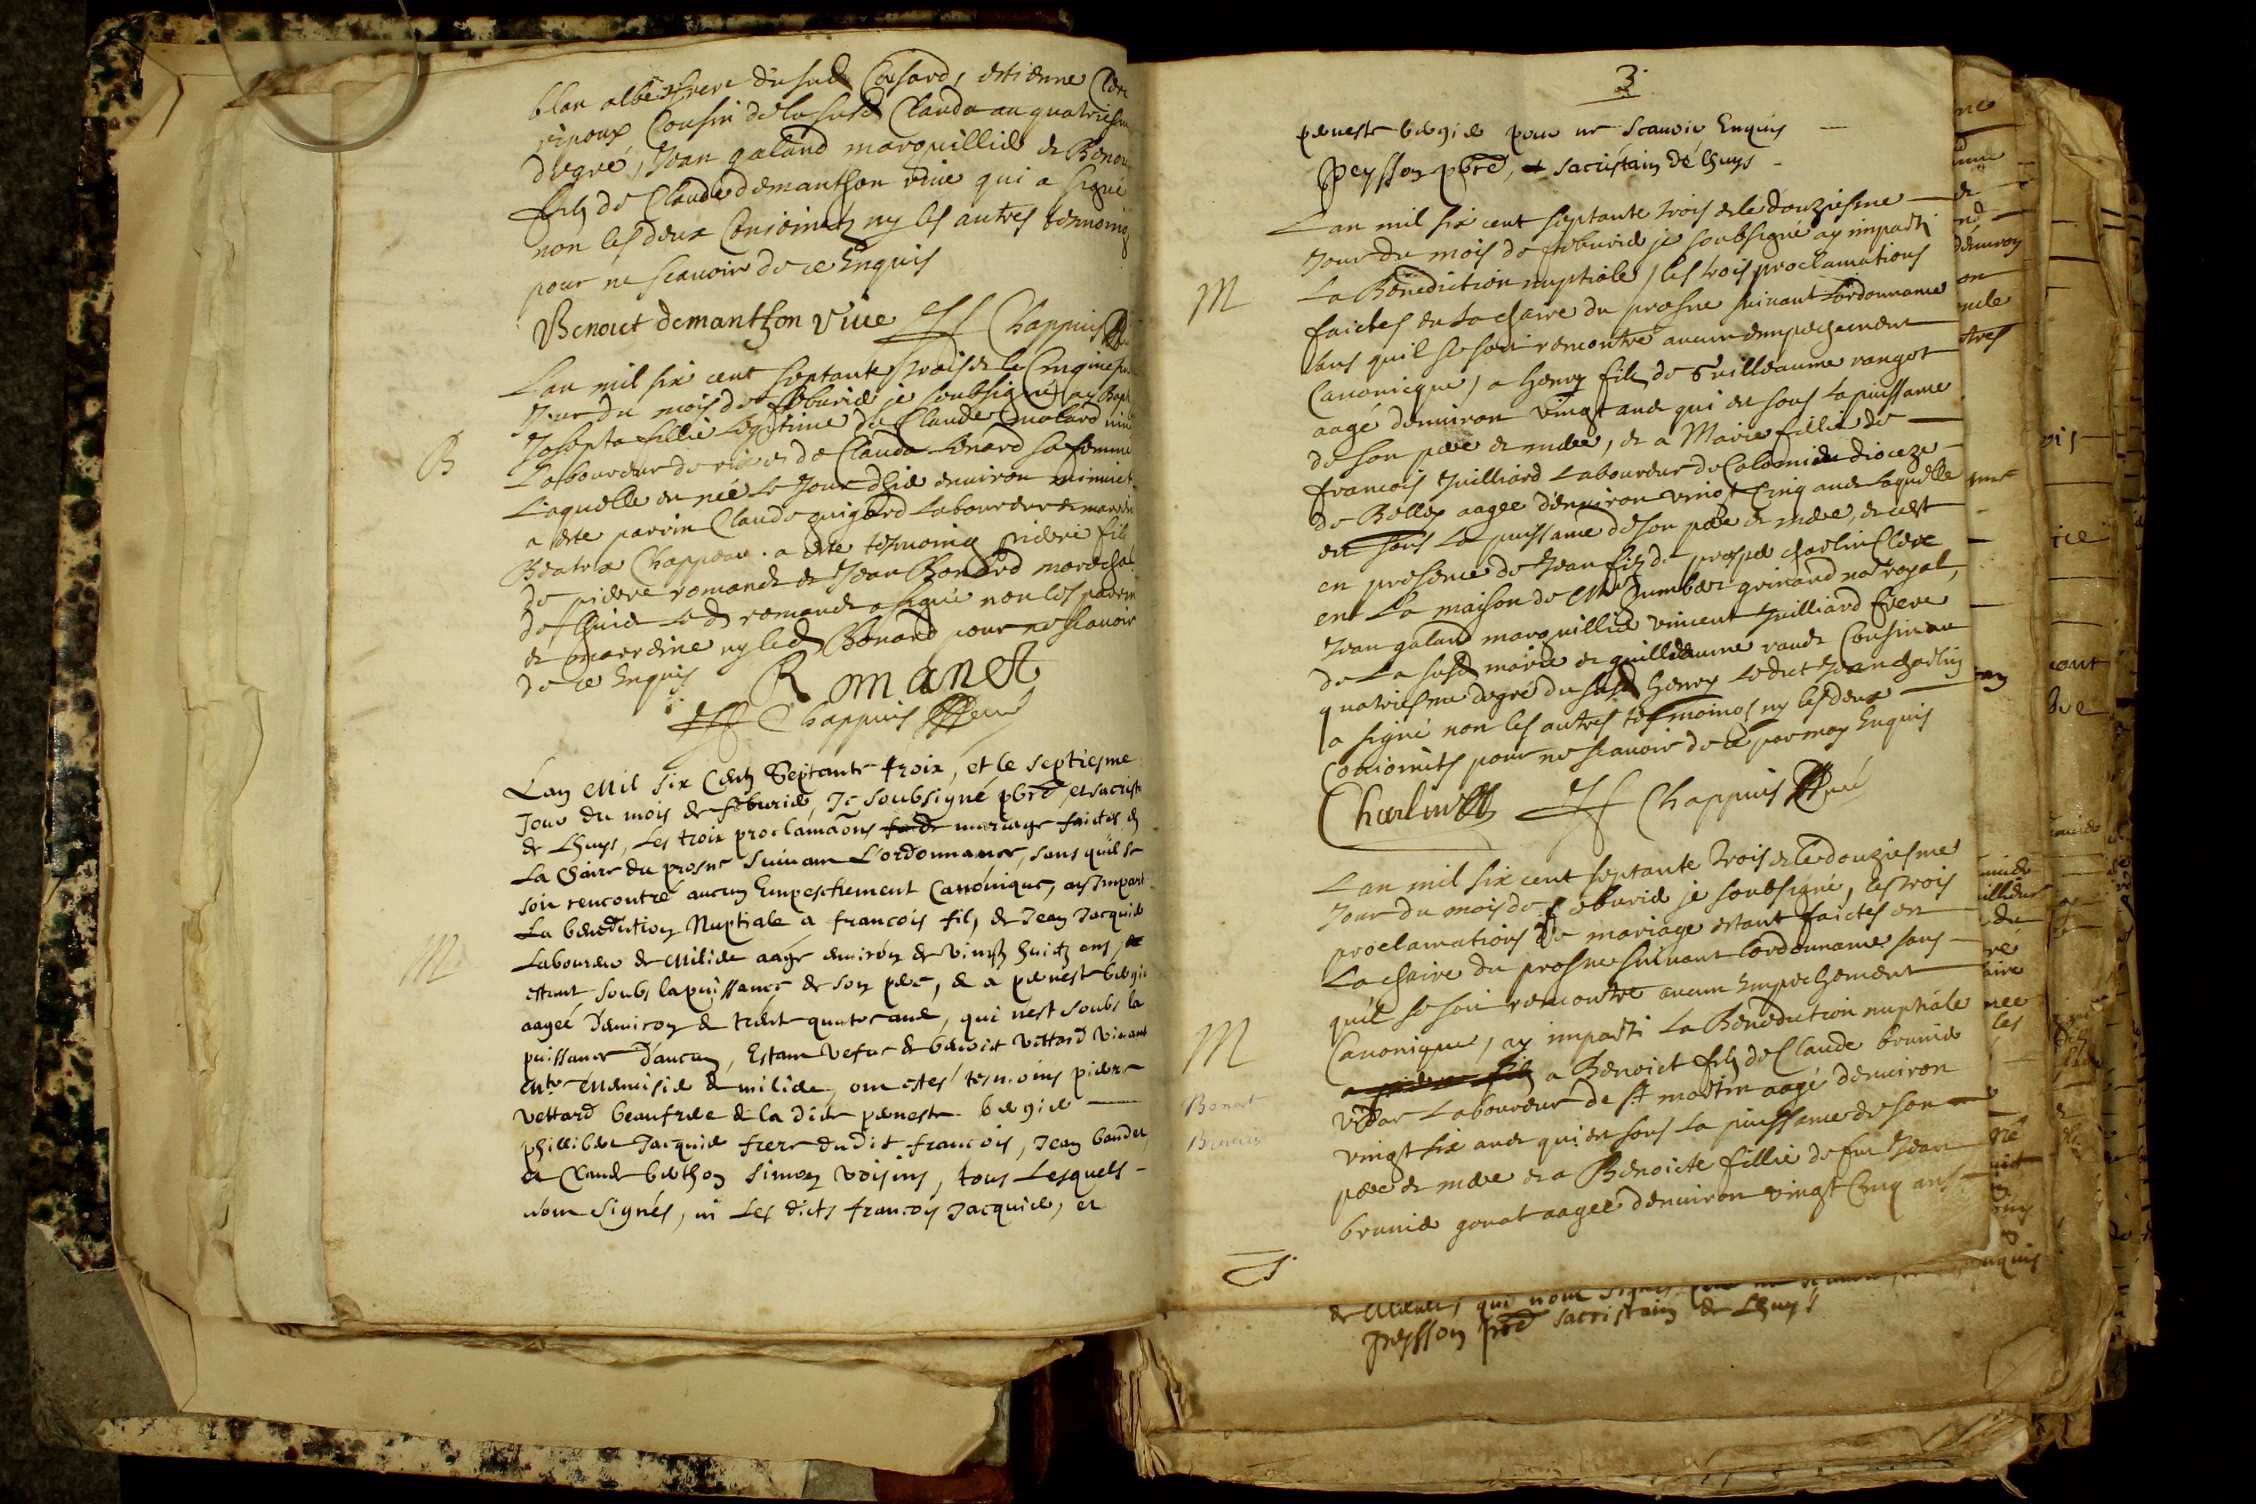 blan albe frere du susd Consard, estienne Clerc
cousin de la susd Clauda au quatriesme
degré, Jean galand marguillier
filz de Claude demanthon vive qui a signé
non les deux Conjoincts ny les autres tesmoings
pour ne scauoir de ce Enquis
Benoict demanthon Viue Chappuis
Lan mil six cent septante trois & le Cinquiesme
Jour du mois de feburier je soubsigné ay
Josepta fillie legitime de Claude molard
Laboureur de & de Clauda Lenard sa femme
Laquelle en née le Jour dhier enuiron minuict
a este parrin Claude guigard Laboureur & marrine
Beatrix Chappeau. a este tesmoing pierre filz
de pierre romand & Jean Bonard mareschal
de Lhuis Led romand a signé non les parrin
& marrine ny led Bonard pour ne scauoir
de ce Enquis
Romanet
Chappuis
B
Lan Mil six Centz Septante troix, et le septiesme
Jour du mois de feburier, Je soubsigné pbre et sacrist
de Lhuys, Les troix proclamaõns de mariage faictes
La Chaire du prosne suiuant L'ordonnance, sans quil se
soit rencontré aucun Empeschement Canonique, ay Impart
La benediction Nuptiale a francois filz de Jean Jacquier
Laboureur de Milieu aagé enuiron de vingtz huictz ans,
estant soubs la puissance de son pere, & a pernest bergier
aageé d'enuiron & trent quatre ans, qui nest soubs la
puissance d'aucun, Estant vefue de benoict vettard viuant
de milieu, ont estes tesmoins pierre
vettard beaufrere de la dicte pernest bergier
phillibert Jacquier frere dudit francois, Jean baudet
et Claude berthon Simon voisins, tous Lesquels
nont signés, ni Les dicts francois Jacquier, et
M
3
pernest bergier pour ne scauoir Enquis
Peysson pbre, & sacristain de Lhuys
Lan mil six cent septante trois & le douziesme
Jour du mois de feburier je soubsigné ay imparti
La Benediction nuptiale, les trois proclamations
faictes en La chaire du prosne suiuant Lordonnance
sans quil se soit rencontré aucun empechement
Canonique, a henry filz de Guilleaume rangot
aagé denuiron vingt ans qui est sous la puissance
de son pere & mere, & a Marie fillie de
francois Juilliard Laboureur de Colomieu dioceze
de Belley aagee denuiron vingt Cinq ans Laquelle
est sous La puissance de son pere & mere, & cest
en presence de Jean filz de prosper charlin Clerc
en La maison de Mre humbert grinand no.re royal,
Jean galand marguillier vincent Juilliard frere
de La susd marie & guilleaume Cousin au
quatriesme degré du susd henry Ledict Jean charlin
a signé non les autres tesmoins ny les deux
Conjoincts pour ne scauoir de ce par moy Enquis
Charlin Chappuis
M
Lan mil six cent septante trois & le douziesme
Jour du mois de feburier je soubsigné, les trois
proclamations de mariage estant faictes en
La chaire du prosne suiuant lordonnance sans
quil se soit rencontré aucun Empechement
Canonique, ay imparti La Benediction nuptiale
a Benoict filz de Claude brunier
vidar Laboureur de St martin aagé denuiron
vingt six ans qui est sous La puissance de son
pere & mere & a Benoicte fillie de feu Jean
brunier gonat aagee denuiron vingt Cinq ans
M
Benoit
Brunier
qui nont signés
peysson pbre sacristain de Lhuys